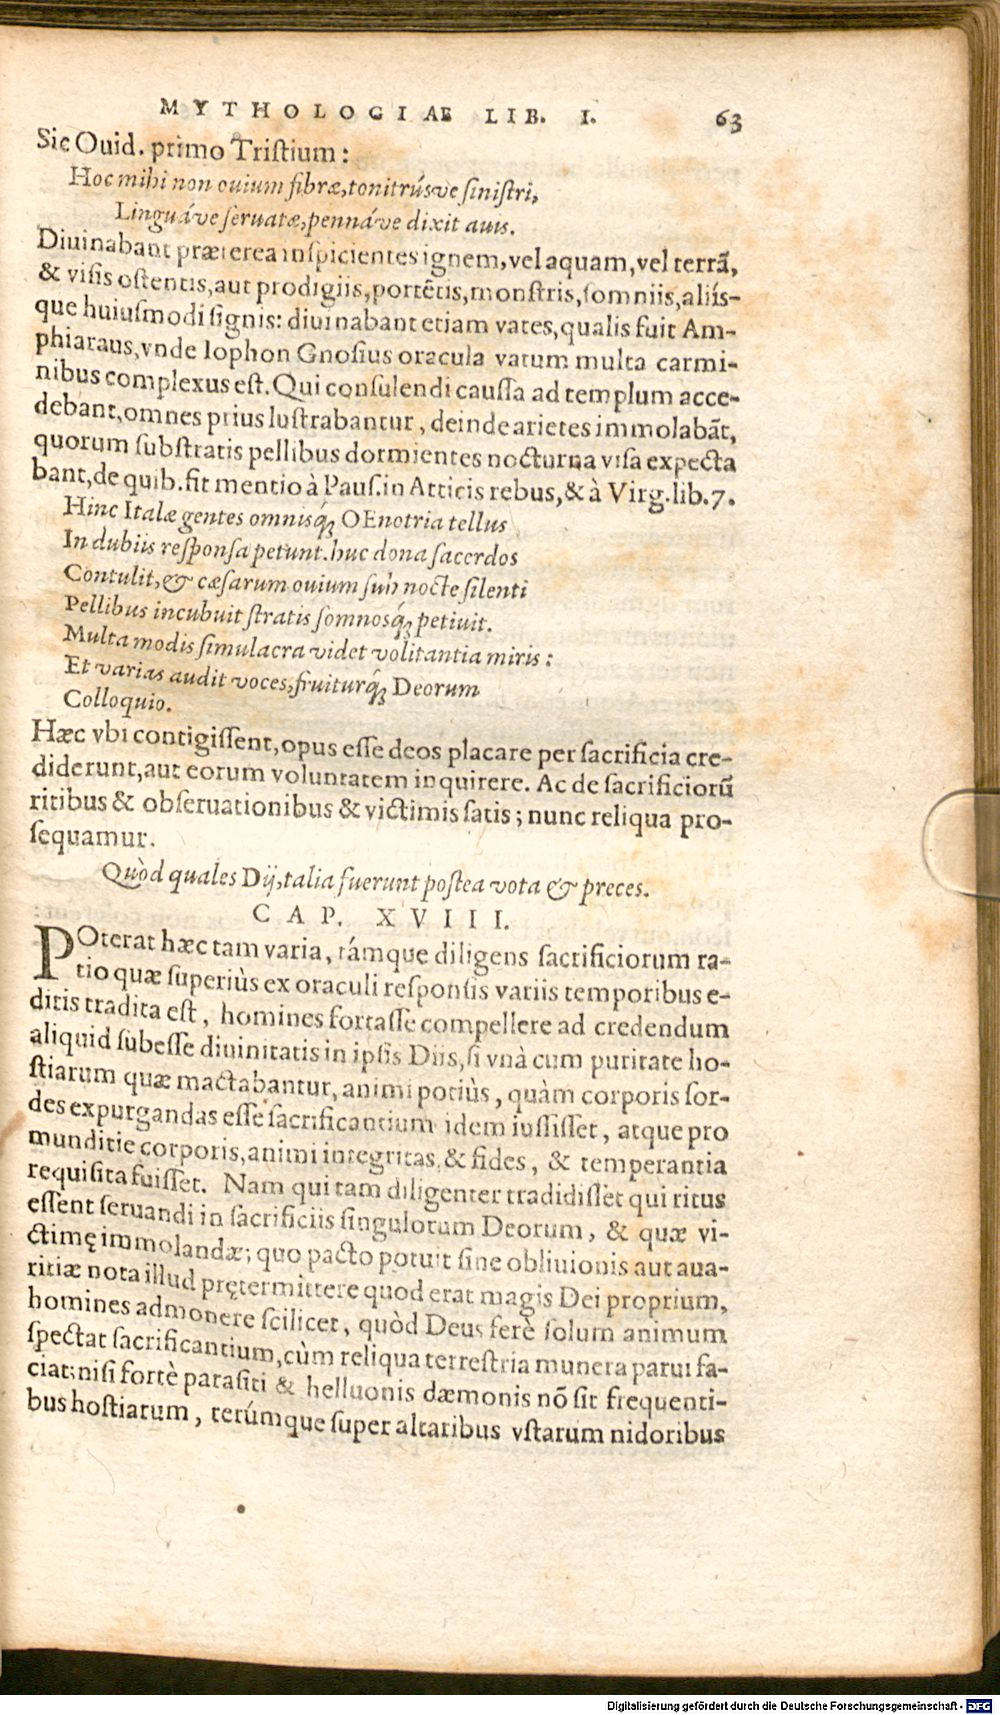 MYTHOLOGIAE LIB. I. 63
Sic Ouid. primo Tristium:
Hoc mihi non ouium fibræ, tonitrúsve sinistri,
Linguáve seruatæ, pennáve dixit auis.
Diuinabant præterea inspicientes ignem, vel aquam, vel terrã,
& visis ostentis, aut prodigiis, portẽtis, monstris, somniis, aliís-
que huiusmodi signis: diuinabant etiam vates, qualis fuit Am-
phiaraus, vnde Iophon Gnosius oracula vatum multa carmi-
nibus complexus est. Qui consulendi caussa ad templum acce-
debant, omnes prius lustrabantur, deinde arietes immolabãt,
quorum substratis pellibus dormientes nocturna visa expecta
bant, de quib. fit mentio à Paus. in Atticis rebus, & à Virg. lib. 7.
Hinc Italæ gentes omnisq́; OEnotria tellus
In dubiis responsa petunt. huc dona sacerdos
Contulit, & cæsarum ouium sub nocte silenti
Pellibus incubuit stratis somnosq́; petiuit.
Multa modis simulacra videt volitantia miris:
Et varias audit voces, fruiturq́; Deorum
Colloquio.
Hæc vbi contigissent, opus esse deos placare per sacrificia cre-
diderunt, aut eorum voluntatem inquirere. Ac de sacrificiorũ
ritibus & obseruationibus & victimis satis; nunc reliqua pro-
sequamur.
Quòd quales Dij, talia fuerunt postea vota & preces.
CAP. XVIII.
POterat hæc tam varia, támque diligens sacrificiorum ra-
tio quæ superiùs ex oraculi responsis variis temporibus e-
ditis tradita est, homines fortasse compellere ad credendum
aliquid subesse diuinitatis in ipsis Diis, si vnà cum puritate ho-
stiarum quæ mactabantur, animi potiùs, quàm corporis sor-
des expurgandas esse sacrificantium idem iussisset, atque pro
munditie corporis, animi integritas & fides, & temperantia
requisita fuisset. Nam qui tam diligenter tradidisset qui ritus
essent seruandi in sacrificiis singulorum Deorum, & quæ vi-
ctimę immolandæ; quo pacto potuit sine obliuionis aut aua-
ritiæ nota illud prętermittere quod erat magis Dei proprium,
homines admonere scilicet, quòd Deus ferè solum animum
spectat sacrificantium, cùm reliqua terrestria munera parui fa-
ciat: nisi fortè parasiti & helluonis dæmonis nõ sit frequenti-
bus hostiarum, terúmque super altaribus vstarum nidoribus
Digitalisierung gefördert durch die Deutsche Forschungsgemeinschaft - DFG